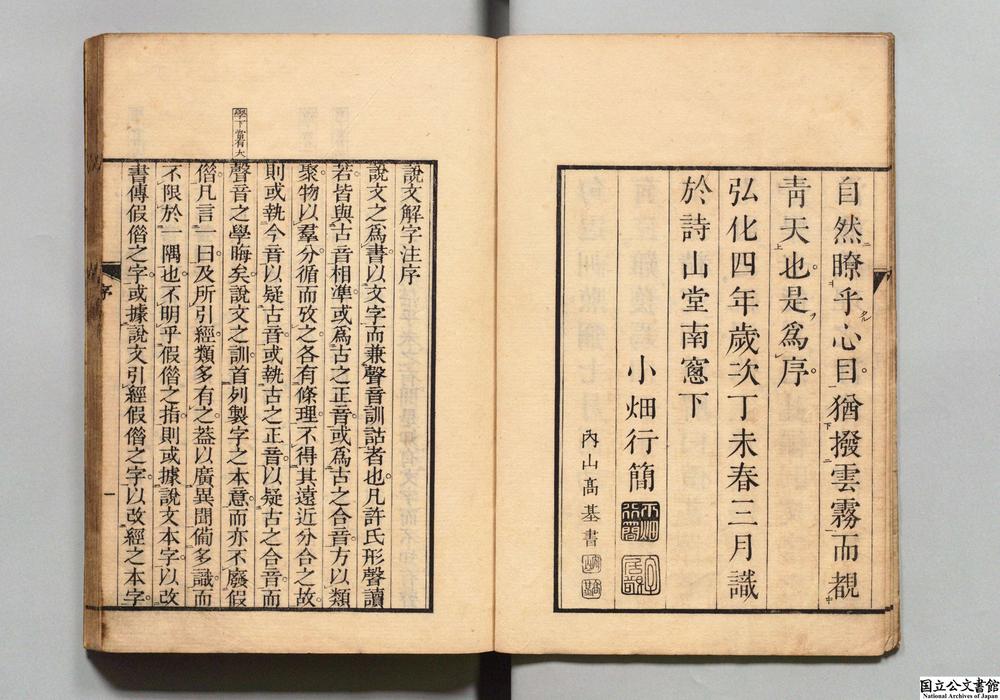 自然瞭乎心目猶撥雲霧而覩
靑天也是爲序
弘化四年歲次丁未春三月識
於詩山堂南窻下
小畑行簡
內山高基書
說文解字注序
說文之爲書以文字而兼聲音訓詁者也凡許氏形聲讀
若皆與古音相準或爲古之正音或爲古之合音方以類
聚物以羣分循而攷之各有條理不得其遠近分合之故
則或執今音以疑古音或執古之正音以疑古之合音而
聲音之學晦矣說文之訓首列製字之本意而亦不廢假
學下當有大
偕凡言一曰及所引經類多有之葢以廣異聞僃多識而
不限於一隅也不明乎假偕之指則或據說文本字以改
書傳假偕之字或據說文引經假偕之字以改經之本字
序
一
国立公文書館
National Archives of Japan